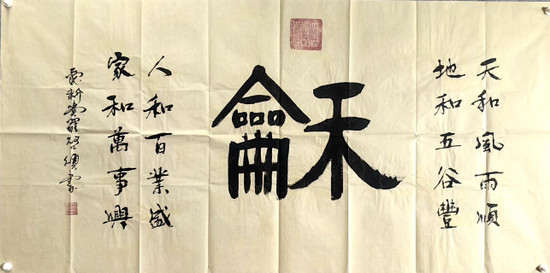 天和風雨順
地和五谷豐
龢
人和百業盛
家和萬事興